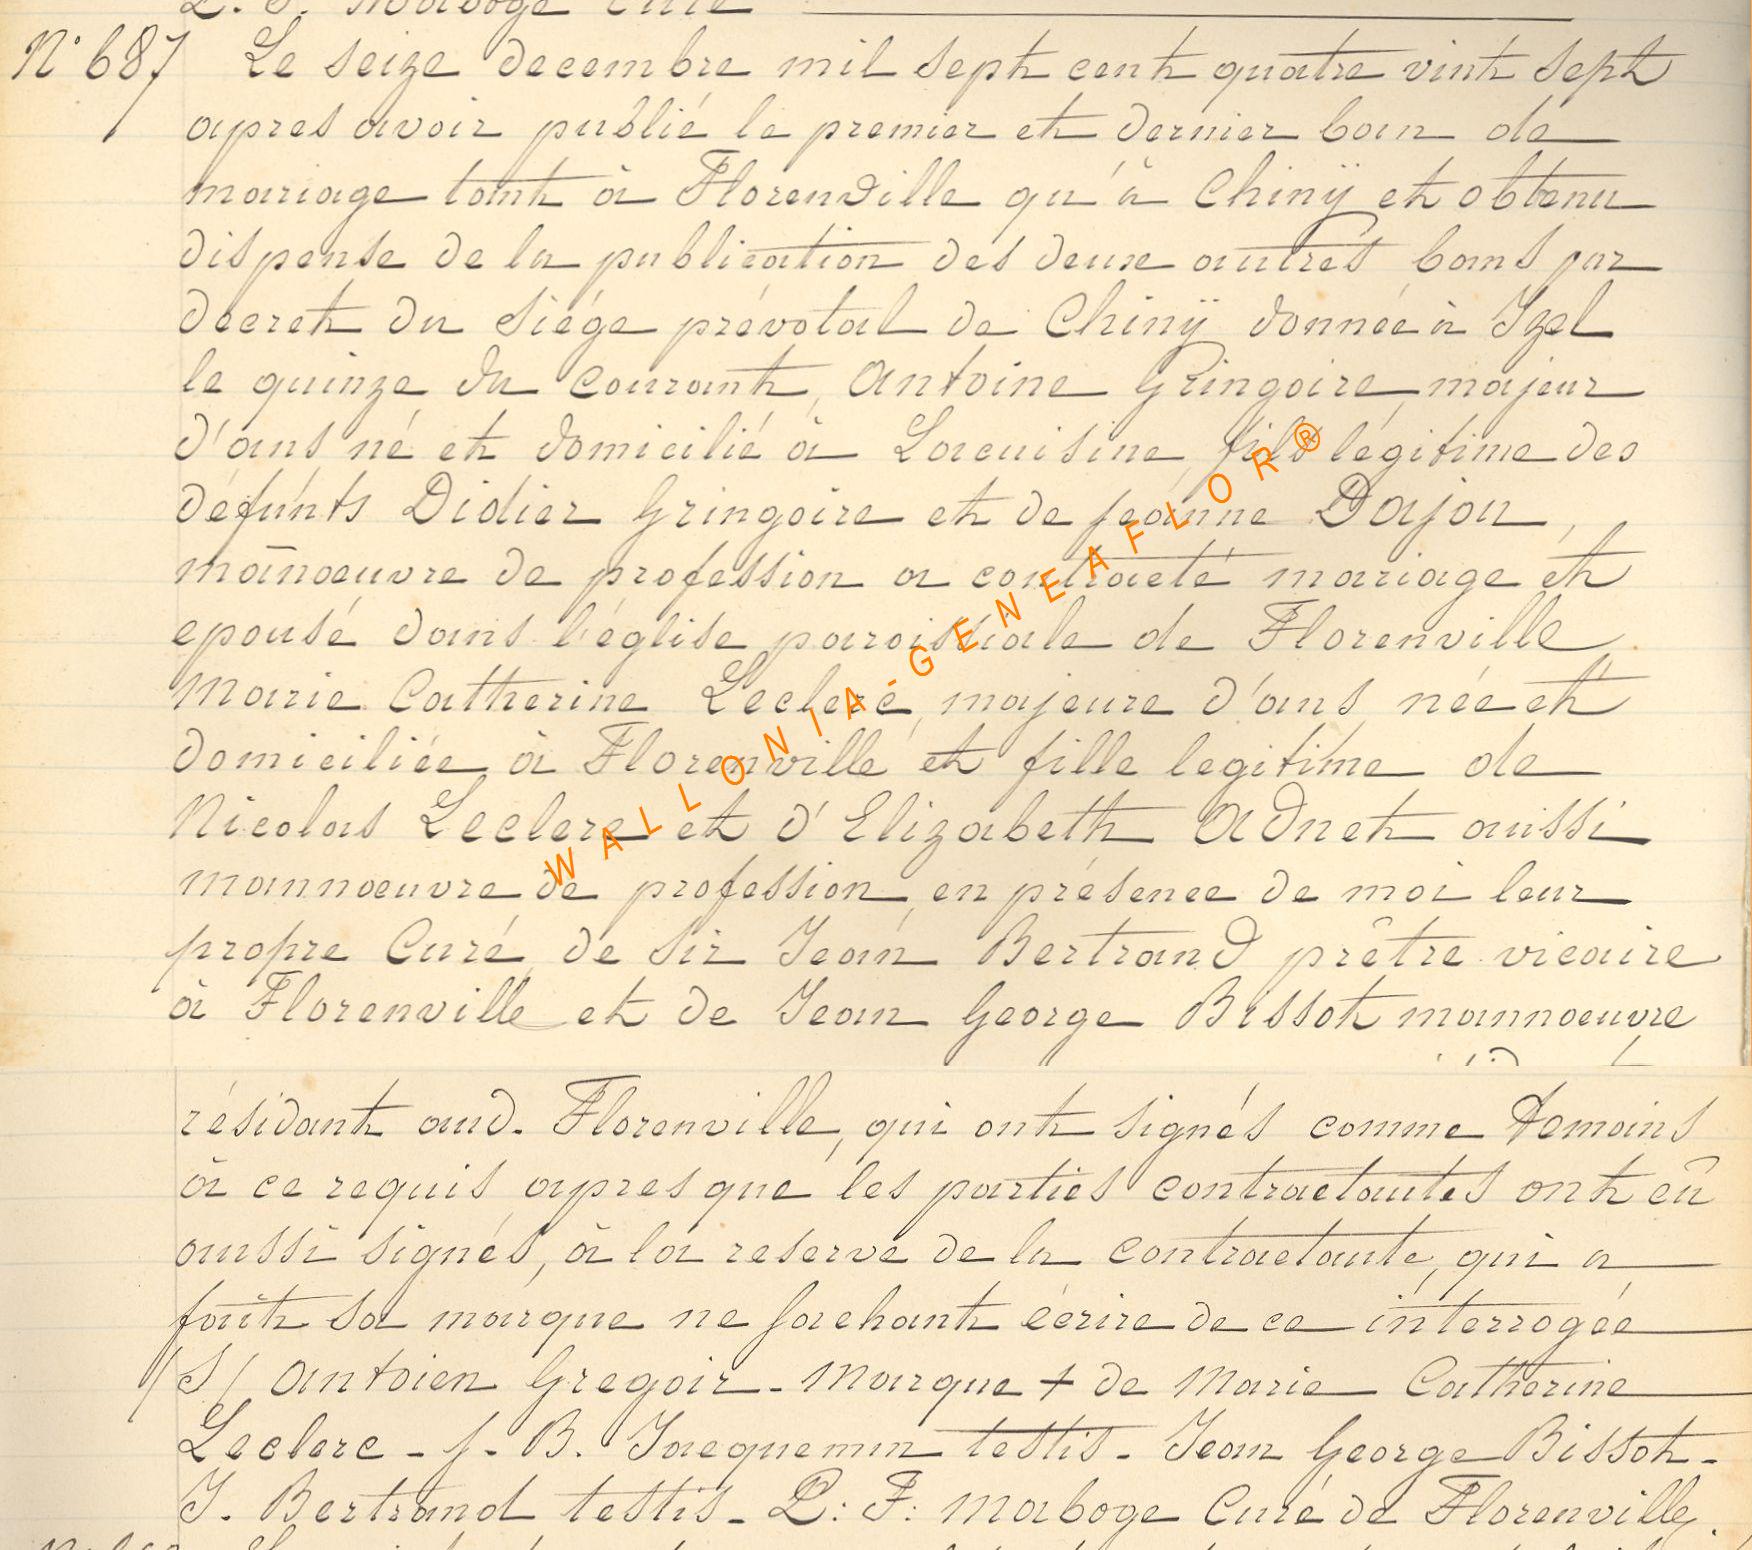 L. F. Maboge Curé
N° 687 Le seize decembre mil sept cent quatre vint sept
apres avoir publié le premier et dernier ban de
mariage tant à Florenville qu'à Chinÿ et obtenu
dispense de la publication des deux autres bans par
décret du Siége prévotal de Chinÿ donnée à Izel
le quinze du courant, Antoine Gringoire, majeur
d'ans né et domicilié à Lacuisine, fils légitime des
défunts Didier Gringoire et de jeanne Dajou,
manoeuvre de profession a contracté mariage et
epousé dans l'église paroissiale de Florenville
Marie Catherine Leclerc, majeure d'ans, née et
domiciliée à Florenville et fille legitime de
Nicolas Leclerc et d'Elizabeth Adnet aussi
mannoeuvre de profession, en présence de moi leur
propre Curé, de Sir Jean Bertrand prêtre vicaire
à Florenville et de Jean George Bissot mannoeuvre
résidant aud. Florenville, qui ont signés comme temoins
à ce requis apres que les parties contractantes ont eû
aussi signés, à la reserve de la contractante, qui a
fait sa marque ne sachant écrire de ce interrogée
/S/ Antoien Gregoir - Marque + de Marie Catherine
Leclerc - j. B. Jacquemin testis - Jean George Bissot -
J. Bertrand testis - L: F: Maboge Curé de Florenville.
WALLONIA-GENEAFLOR®